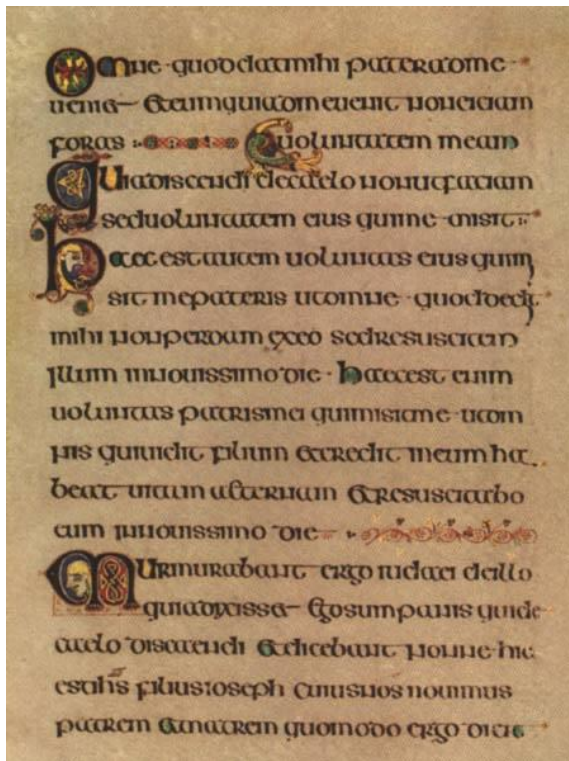 Omne quod dat mihi pater ad me
ueniet et eum qui ad me uenit non eiciam
foras uoluntatem meam
Quia discendi de caelo non ut faciam
sed uoluntatem eius qui me misit
haec est autem uoluntas eius qui mi
sit me pateris ut omne quod dedit
mihi non perdam ex eo sed resuscitem
illum in nouissimo die · haec est enim
uoluntas patris mei qui misit me ut om
nis qui uidit filium et credit in eum ha
beat uitam aeternam et resuscitabo
eum in nouissimo die
Murmurabant ergo iudaei de illo
quia dixisset ego sum panis qui de
caelo discendi et dicebant nonne hic
est ihs filius ioseph cuius nos nouimus
patrem et matrem quomodo ergo dicit